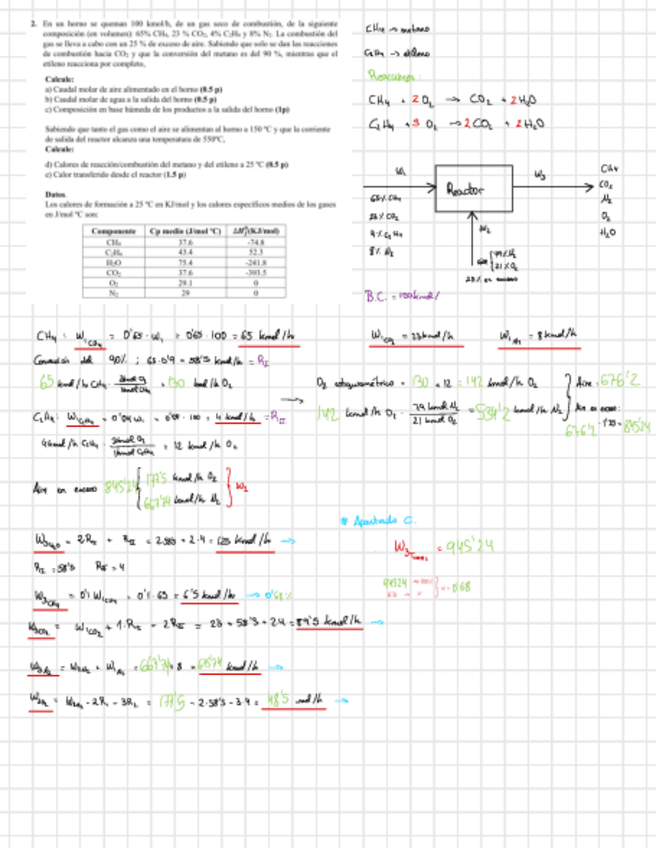 2. En un horno se queman 100 kmol/h, de un gas seco de combustión, de la siguiente
composición (en volumen): 65% CH₄, 23 % CO₂, 4% C₂H₄ y 8% N₂. La combustión del
gas se lleva a cabo con un 25 % de exceso de aire. Sabiendo que solo se dan las reacciones
de combustión hacia CO₂ y que la conversión del metano es del 90 %, mientras que el
etileno reacciona por completo,
Calcule:
a) Caudal molar de aire alimentado en el horno (0.5 p)
b) Caudal molar de agua a la salida del horno (0.5 p)
c) Composición en base húmeda de los productos a la salida del horno (1p)
Sabiendo que tanto el gas como el aire se alimentan al horno a 150 ºC y que la corriente
de salida del reactor alcanza una temperatura de 550ºC,
Calcule:
d) Calores de reacción/combustión del metano y del etileno a 25 ºC (0.5 p)
e) Calor transferido desde el reactor (1.5 p)
Datos
Los calores de formación a 25 ºC en KJ/mol y los calores específicos medios de los gases
en J/mol ºC son:
Componente Cp medio (J/mol ºC) ΔHf(KJ/mol)
CH₄ 37.6 -74.8
C₂H₄ 43.4 52.3
H₂O 75.4 -241.8
CO₂ 37.6 -393.5
O₂ 29.1 0
N₂ 29 0
CH₄ → metano
C₂H₄ → etileno
Reacciones:
CH₄ + 2O₂ → CO₂ + 2H₂O
C₂H₄ + 3 O₂ → 2CO₂ + 2H₂O
W₁
W₃
Reactor
65% CH₄
23% CO₂
4% C₂H₄
8% N₂
W₂
79% N₂
21% O₂
25% en exceso
CH₄
CO₂
N₂
O₂
H₂O
B.C. = 100kmol/
CH₄ : W₁CH₄ = 0'65 · W₁ = 0'65 · 100 = 65 kmol/h
W₁CO₂ = 23kmol/h
W₁N₂ = 8kmol/h
Conversión del 90% ; 65·0'9 = 58'5 kmol/h = R₁
65 kmol/h CH₄ · 2kmol O₂ / 1kmol CH₄ = 130 kmol/h O₂
→
O₂ estequiométrico = 130 + 12 = 142 kmol/h O₂
142 kmol/h O₂ · 79 kmol N₂ / 21 kmol O₂ = 534'2 kmol/h N₂
Aire = 676'2
Aire en exceso:
676'2 · 1'25 = 845'24
C₂H₄: W₁C₂H₄ = 0'04 W₁ = 0'04 · 100 = 4 kmol/h = R₂
4kmol/h C₂H₄ · 3kmol O₂ / 1kmol C₂H₄ = 12 kmol/h O₂
Aire en exceso 845'24
177'5 kmol/h O₂
667'74 kmol/h N₂
W₂
* Apartado C.
W₃H₂O = 2R₁ + R₂ = 2·58'5 + 2·4 = 125 kmol/h →
W₃ = 945'24
R₁ = 58'5 R₂ = 4
W₃CH₄ = 0'1 W₁CH₄ = 0'1·65 = 6'5 kmol/h → 0'68%
945'24
0'68
W₃CO₂ = W₁CO₂ + 1·R₁ - 2R₂ = 23 + 58'5 + 2·4 = 89'5 kmol/h →
W₃N₂ = W₂N₂ + W₁N₂ = 667'74 + 8 = 675'74 kmol/h →
W₃O₂ = W₂O₂ - 2R₁ - 3R₂ = 177'5 - 2·58'5 - 3·4 = 48'5 mol/h →